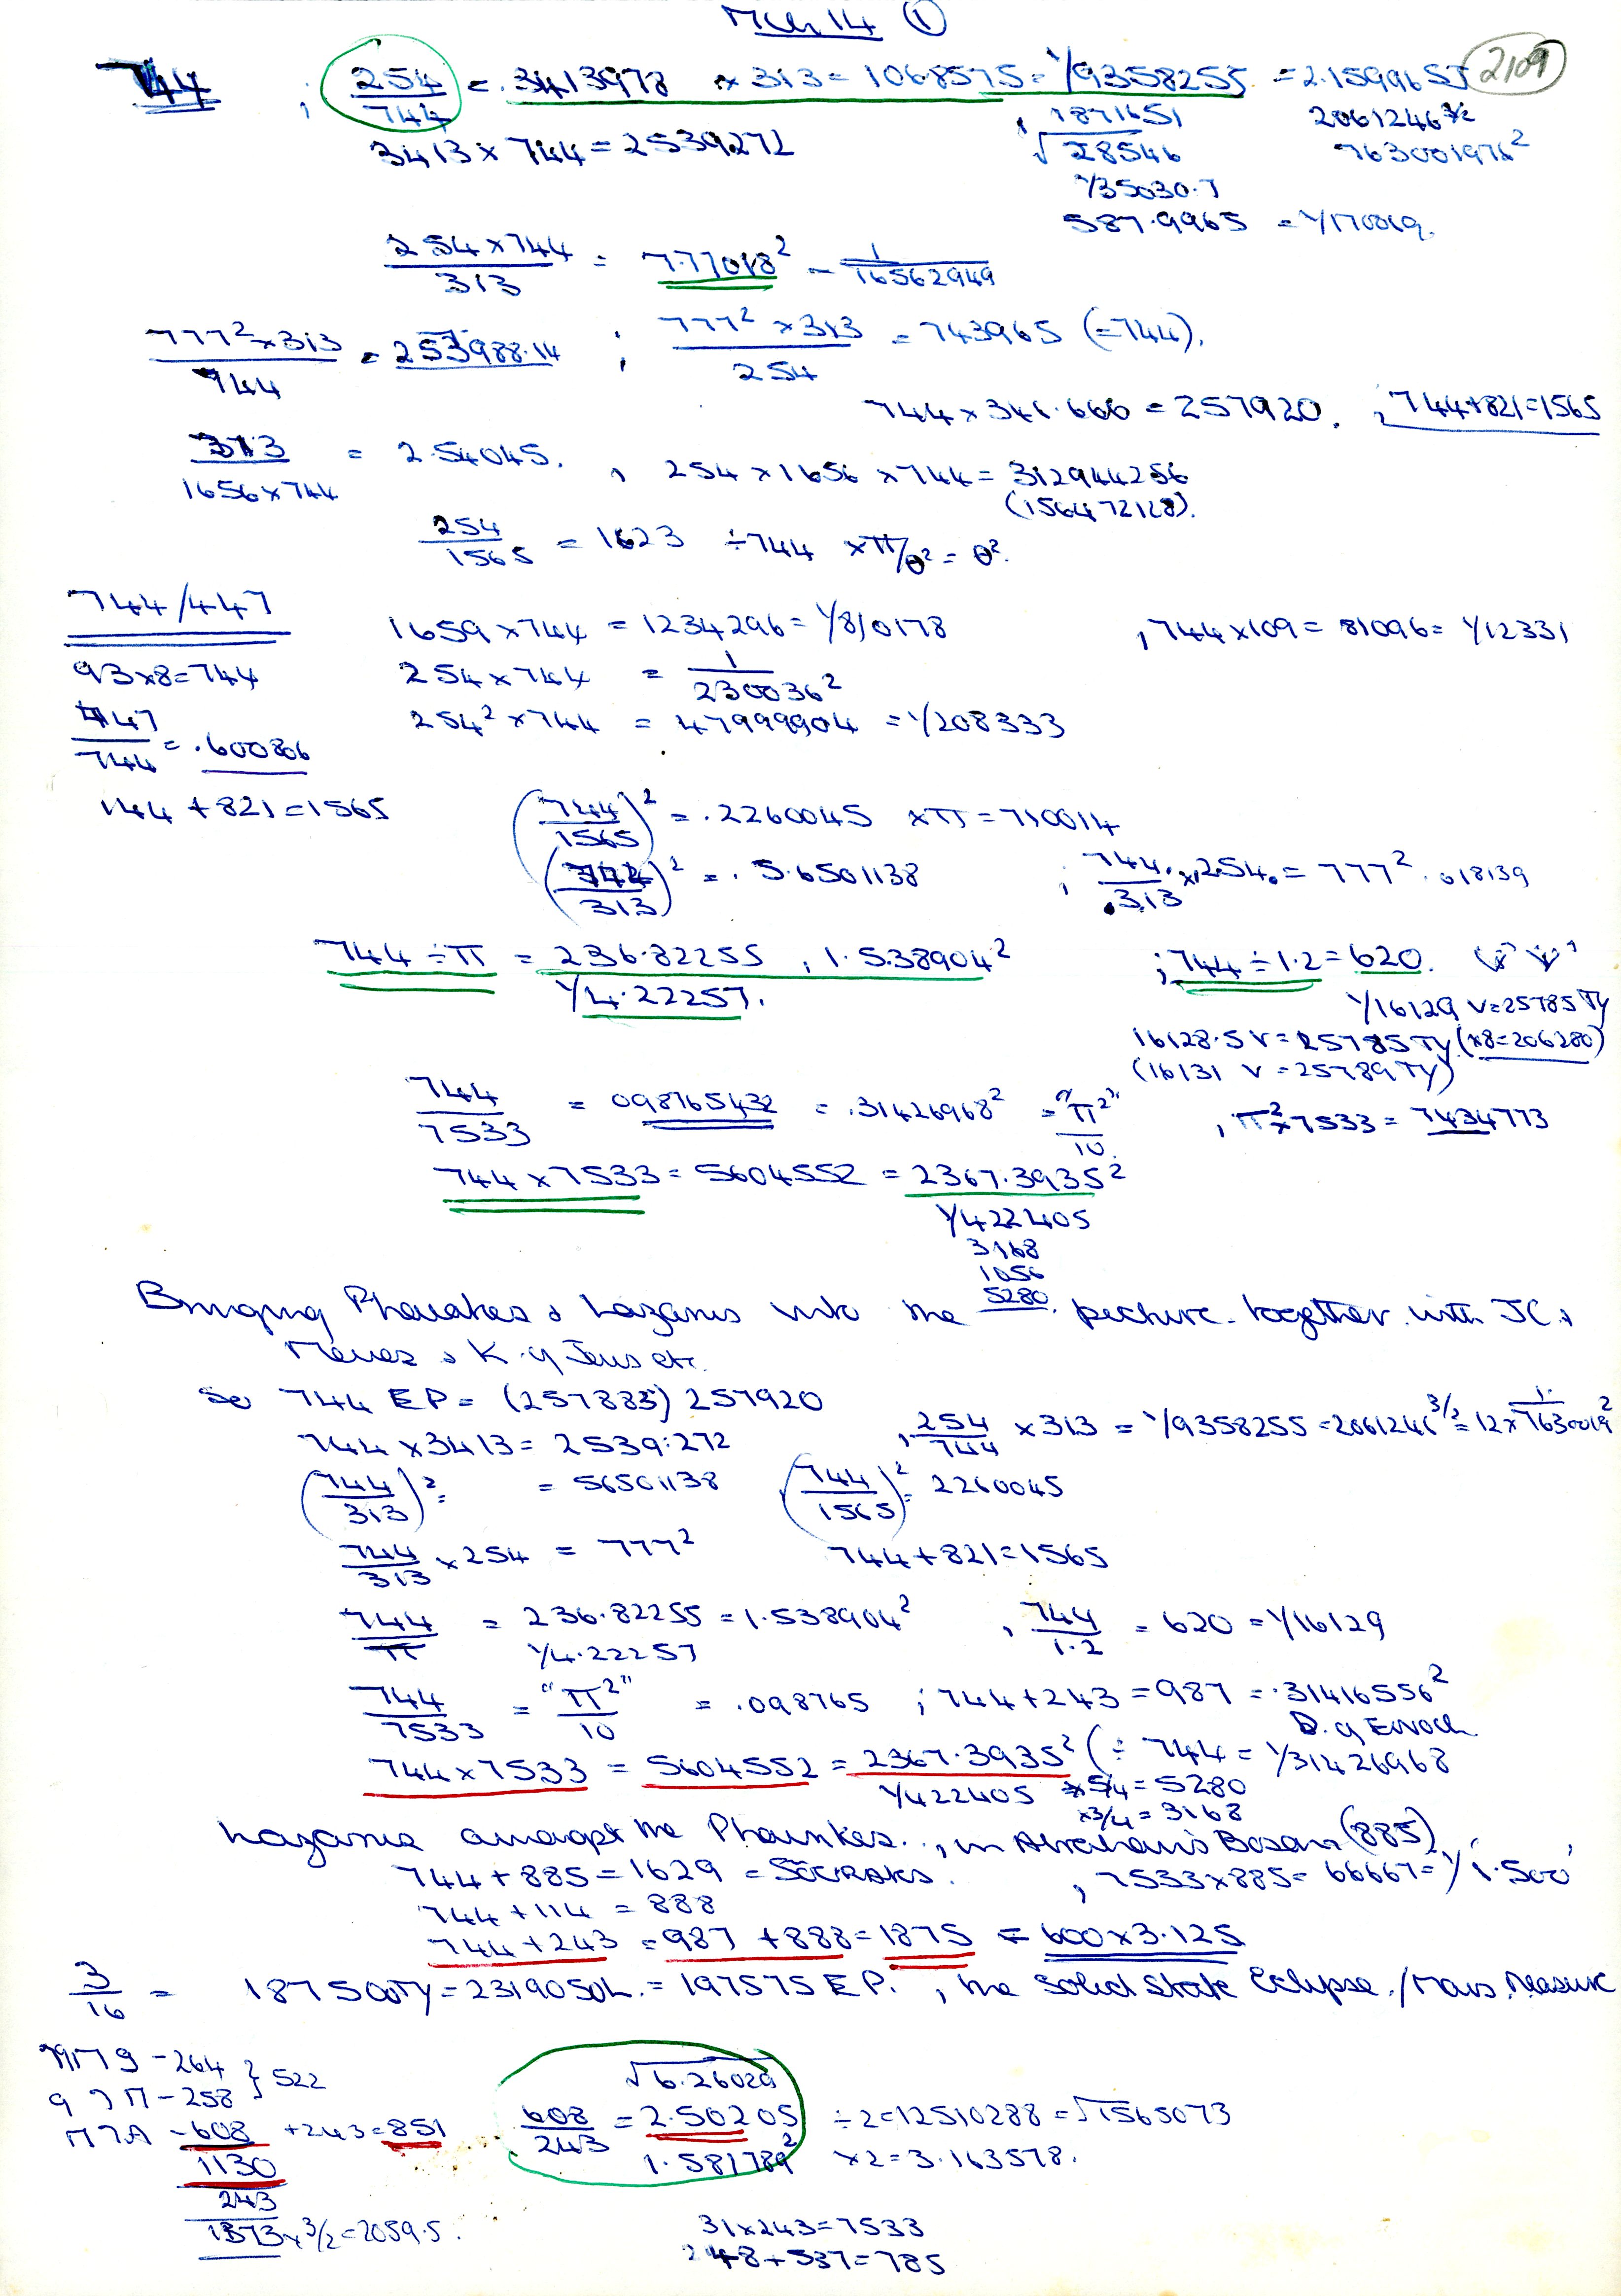 Mch 14 ①
2109
744 ; 254/744 = .3413978 × 313 = 1068575 = 1/9358255 = 2.1599655
3413 × 744 = 2539272
, 1871651
√28546
1/35030.7
587.9965 = 1/170069.
2061246 3/2
763001976²
254 × 744/313 = 7.77018² - 1/16562949
777² × 313/744 = 253988.14 ; 777² × 313/254 = 743965 (=744).
744 × 346.666 = 257920. , 744+821=1565
313/1656 × 744 = 2.54045. , 254 × 1656 × 744 = 312944256
(156472128).
254/1565 = 1623 ÷744 × π/θ² = θ².
744/447
1659 × 744 = 1234296 = 1/810178 , 744 × 109 = 81096 = 1/12331
93×8=744 254 × 744 = 1/230036²
447/744 = .600806 254² × 744 = 47999904 = 1/208333
744 + 821 = 1565
(744/1565)² = .2260045 × π = 710014
(744/313)² = . 5.6501138 ; 744./.313 × .254. = 777² .018139
744 ÷ π = 236.82255 , 1.538904² ; 744 ÷ 1.2 = 620.
1/4.22257.
1/16129 V=25785 Ty
16128.5 V = 25785 Ty (×8=206280)
(16131 V = 25789 Ty)
744/7533 = 098765432 = .31426968² = "π²"/10 , π² × 7533 = 7434773
744 × 7533 = 5604552 = 2367.3935²
1/422405
3168
1056
5280
Bringing Pharakes & Lazarus into the picture together with JC &
Menes & K. of Jeus etc.
So 744 EP = (257885) 257920
744 × 3413 = 2539.272 , 254/744 × 313 = 1/9358255 = 2061246 3/2 = 12 × 1/7630019²
(744/313)² = = 56501138 (744/1565)² = 2260045
744/313 × 254 = 777² 744+821=1565
744/π = 236.82255 = 1.538904² , 744/1.2 = 620 = 1/16129
1/4.22257
744/7533 = "π²"/10 = .098765 ; 744+243 = 987 = .31416556²
D. of Enoch
744 × 7533 = 5604552 = 2367.3935² (÷ 744 = 1/31426968
1/422405 ×5/4 = 5280
×3/4 = 3168
Lazarus amongst the Pharakes.., in Abraham's Bosom (885)
744 + 885 = 1629 = SŌCRATES. , 7533 × 885 = 66667 = 1/1.500
744 + 114 = 888
744 + 243 = 987 + 888 = 1875 = 600 × 3.125
3/16 = 187500Ty = 2319050L. = 197575 EP. , the Solid State Eclipse./Mars Measure
- 264 } 522
- 258
- 608 + 243 = 851
1130
243
1373 × 3/2 = 2059.5.
√6.26029
608/243 = 2.50205 ÷2=12510288=√1565073
1.581789² ×2=3.163578.
31×243=7533
248+537=785